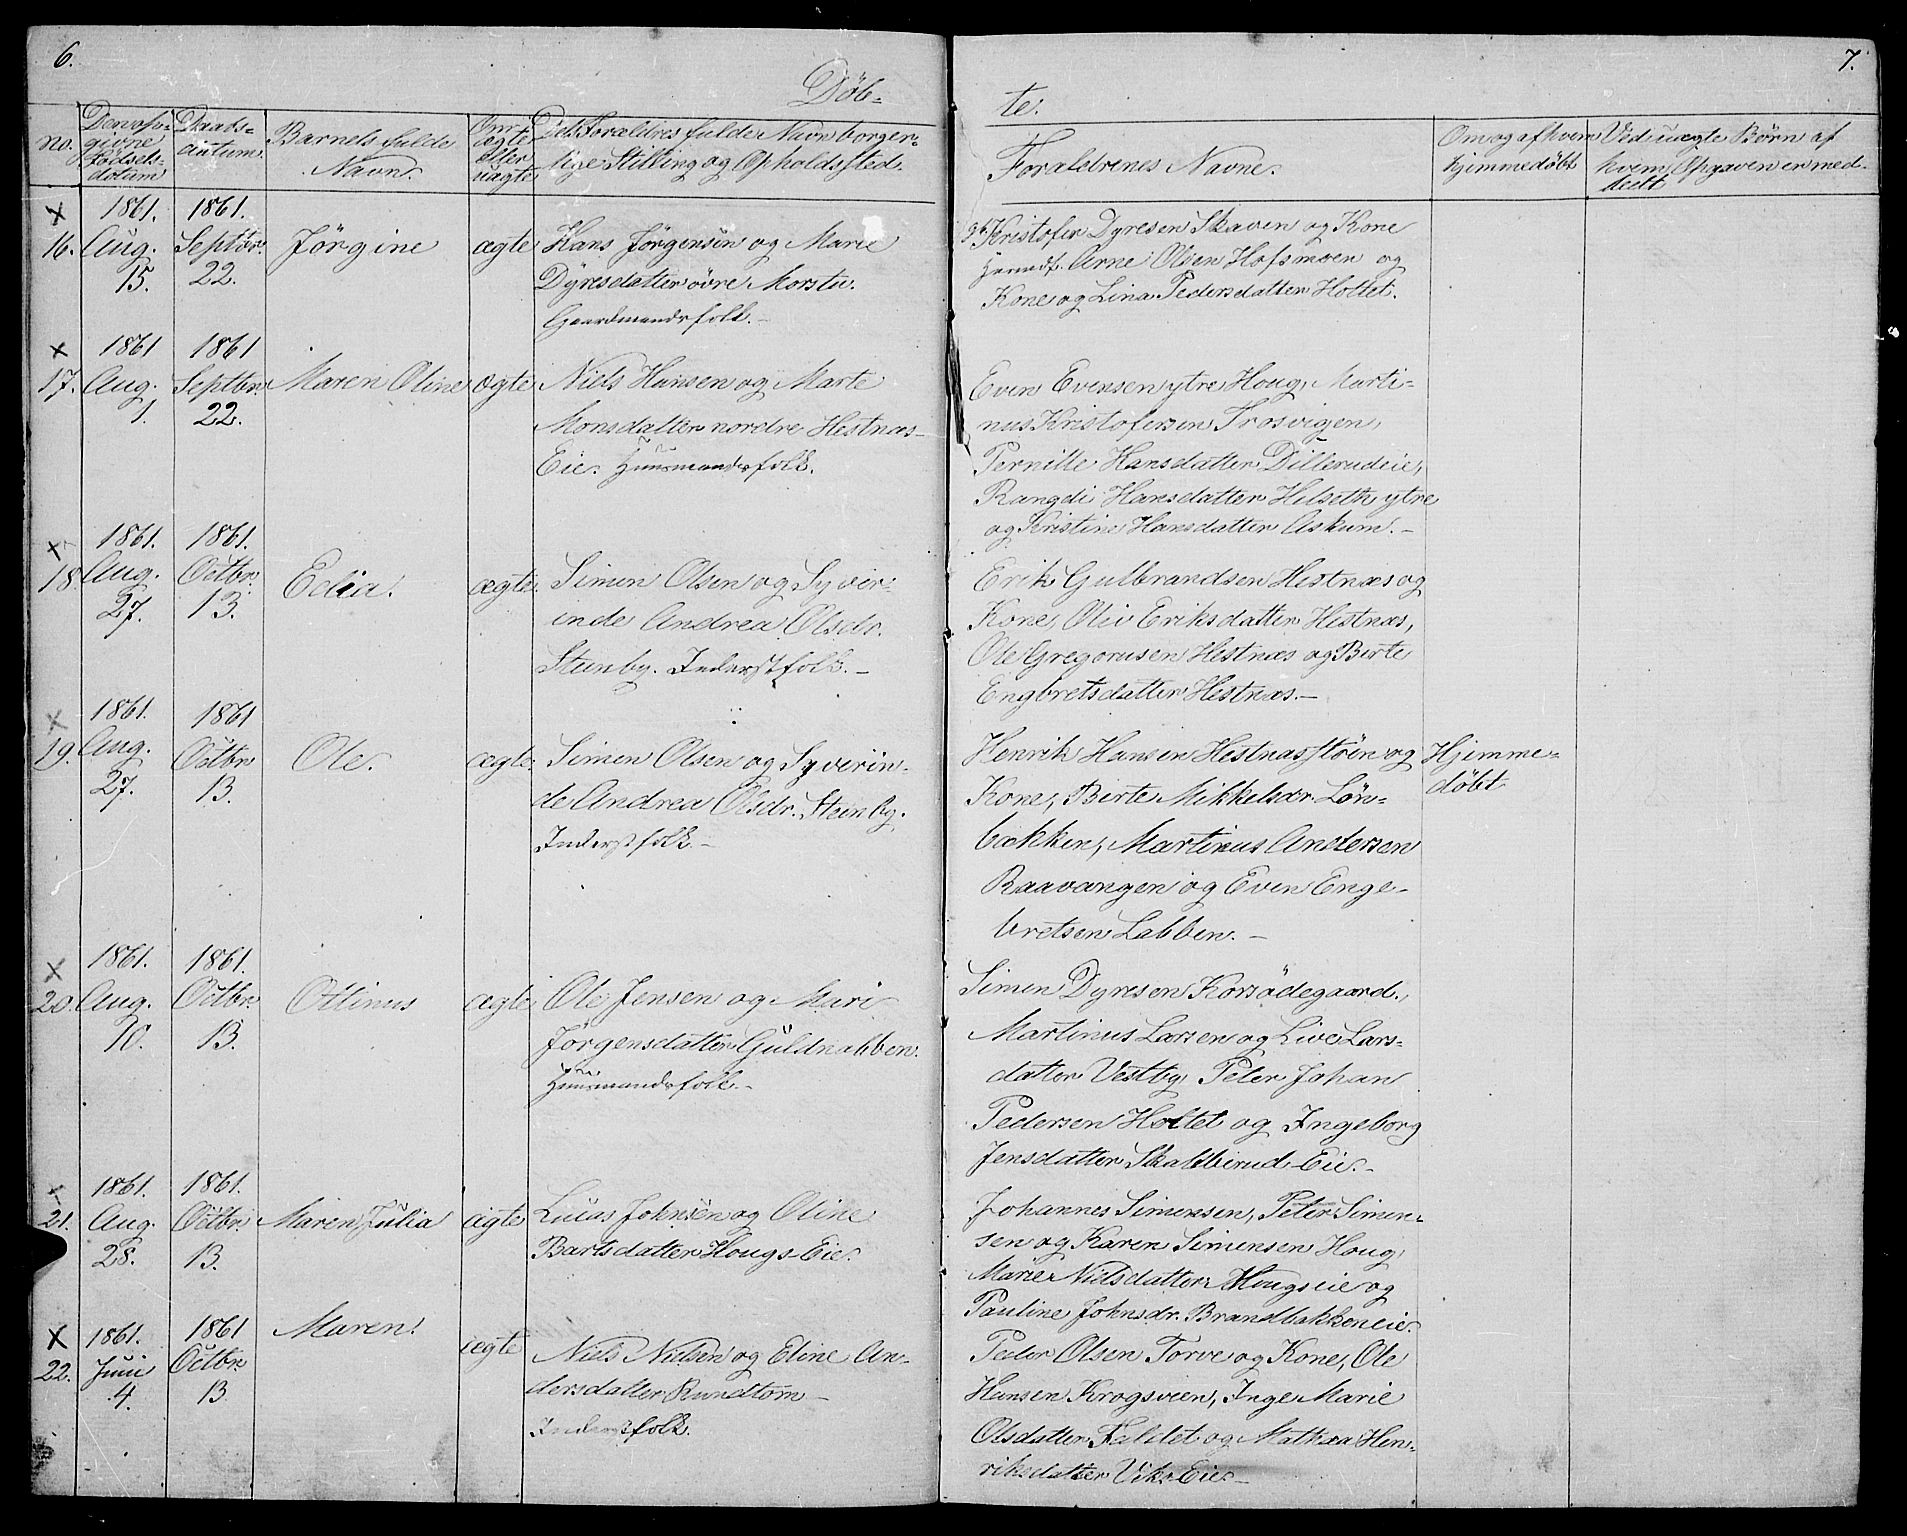 6.
7.
Döb-
te.
No.
Den opgivne Fødselsdatum
Daabsdatum
Barnets fulde
Navn.
Om ægte eller uægte
Dets Forældres fulde Navn borger-
lige Stilling og Opholdssted.
Foraldrenes Navne.
Om og af hvem
hjimmedöbt
Ved uægte Börn af
hvem Opgaven er med-
deelt
16.
1861.
Aug.
15.
1861.
Septbr.
22.
Jörgine
ægte
Hans Jörgensen og Marie
Dyresdatter övre Morstu.
Gaardmandsfolk.-
Kristofer Dyresen Skaven og Kone
Arne Olsen Hofsmoen og
Kone og Lina Pedersdatter Holtet.
17.
1861
Aug.
1.
1861
Septbr.
22.
Maren Oline
ægte
Niels Hansen og Marte
Monsdatter nordre Hestnæs-
Eie. Huusmandsfolk.
Even Evensen ytre Houg, Marti-
nus Kristofersen Trosvigen,
Pernille Hansdatter Dillerudeie,
Rangdi Hansdatter Helseth ytre
og Kristine Hansdatter Askum.-
18.
1861.
Aug.
27.
1861.
Octbr.
13.
Edia.
ægte.
Simen Olsen og Syver-
inde Andrea Olsdr.
Steenby. Inderstfolk.-
Erik Gulbrandsen Hestnæs og
Kone, Oliv Eriksdatter Hestnæs,
Ole Gregorusen Hestnæs og Birte
Engbretsdatter Hestnæs.-
19.
1861.
Aug.
27.
1861
Octbr.
13.
Ole.
ægte.
Simen Olsen og Syverin-
de Andrea Olsdr. Steenby.
Inderstfolk.-
Henrik Hansen Hestnæsstöen og
Kone, Birte Mikkelsdr. Lön-
bækken, Martinus Andersen
Raavangen og Even Enge-
bretsen Labben.-
Hjimme-
döbt
20.
1861.
Aug.
10.
1861.
Octbr.
13.
Ottinus
ægte
Ole Jensen og Mari
Jörgensdatter Guldnabben.
Huusmandsfolk.-
Simen Dyresen Korsödegaard.,
Martinus Larsen og Live Lars-
datter Vestby, Peter Johan
Pedersen Holtet og Ingeborg
Jensdatter Skabberud-Eie.-
21.
1861.
Aug.
28.
1861.
Octbr.
13.
Maren Julia
ægte
Lucas Johnsen og Oline
Bartsdatter Hougs-Eie.
Johannes Simensen, Peter Simen-
sen og Karen Simensen Houg,
Marie Nielsdatter Hougseie og
Pauline Johnsdr. Brandbakkeneie.
22.
1861.
Juni
4.
1861
Octbr.
13
Maren.
ægte
Niels Nielsen og Eline An-
dersdatter Rundtom-
Inderstfolk.
Peder Olsen Torve og Kone, Ole
Hansen Krogsveen, Inge Marie
Olsdatter Faldet og Mathea Hen-
riksdatter Viks Eie.-